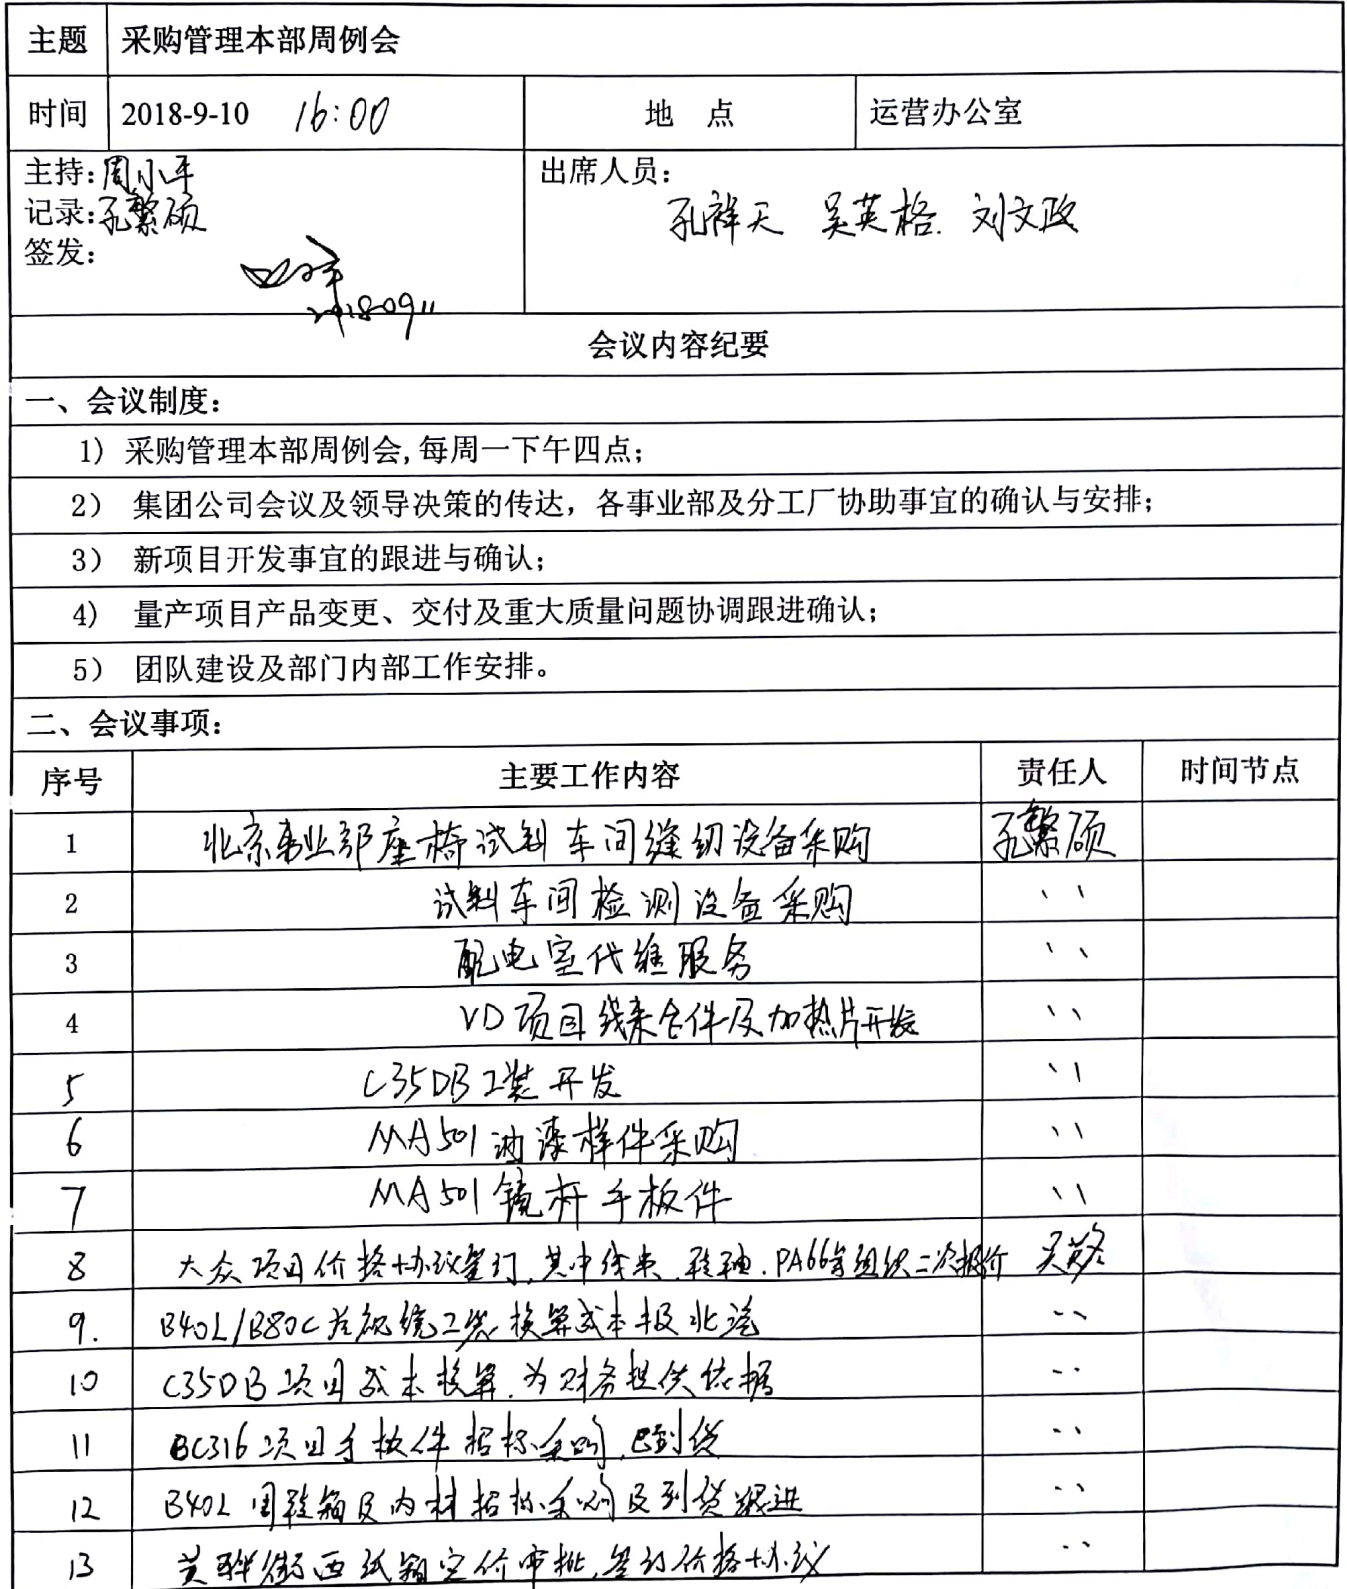 主题 采购管理本部周例会
时间 2018-9-10 16:00 地 点 运营办公室
主持:周小平 出席人员:
记录:孔繁硕 孔祥天 吴英格. 刘文政
签发:
20180911
会议内容纪要
一、会议制度:
1) 采购管理本部周例会,每周一下午四点;
2) 集团公司会议及领导决策的传达,各事业部及分工厂协助事宜的确认与安排;
3) 新项目开发事宜的跟进与确认;
4) 量产项目产品变更、交付及重大质量问题协调跟进确认;
5) 团队建设及部门内部工作安排。
二、会议事项:
序号 主要工作内容 责任人 时间节点
1 北京事业部座椅试制车间缝纫设备采购 孔繁硕
2 试制车间检测设备采购 、、
3 配电室代维服务 、、
4 VD项目线束合件及加热片开发 、、
5 C35DB工装开发 、、
6 MA501油漆样件采购 、、
7 MA501镜杆手板件 、、
8 大众项目价格协议签订,其中线束.转轴.PA66等组织二次报价 吴英格
9. B40L/B80C后视镜工装核算成本报北汽 、、
10 C35DB项目成本核算.为财务提供依据 、、
11 BC316项目手板件招标采购,已到货 、、
12 B40L周转箱及内材招标采购及到货跟进 、、
13 纸箱定价审批,签订价格协议 、、